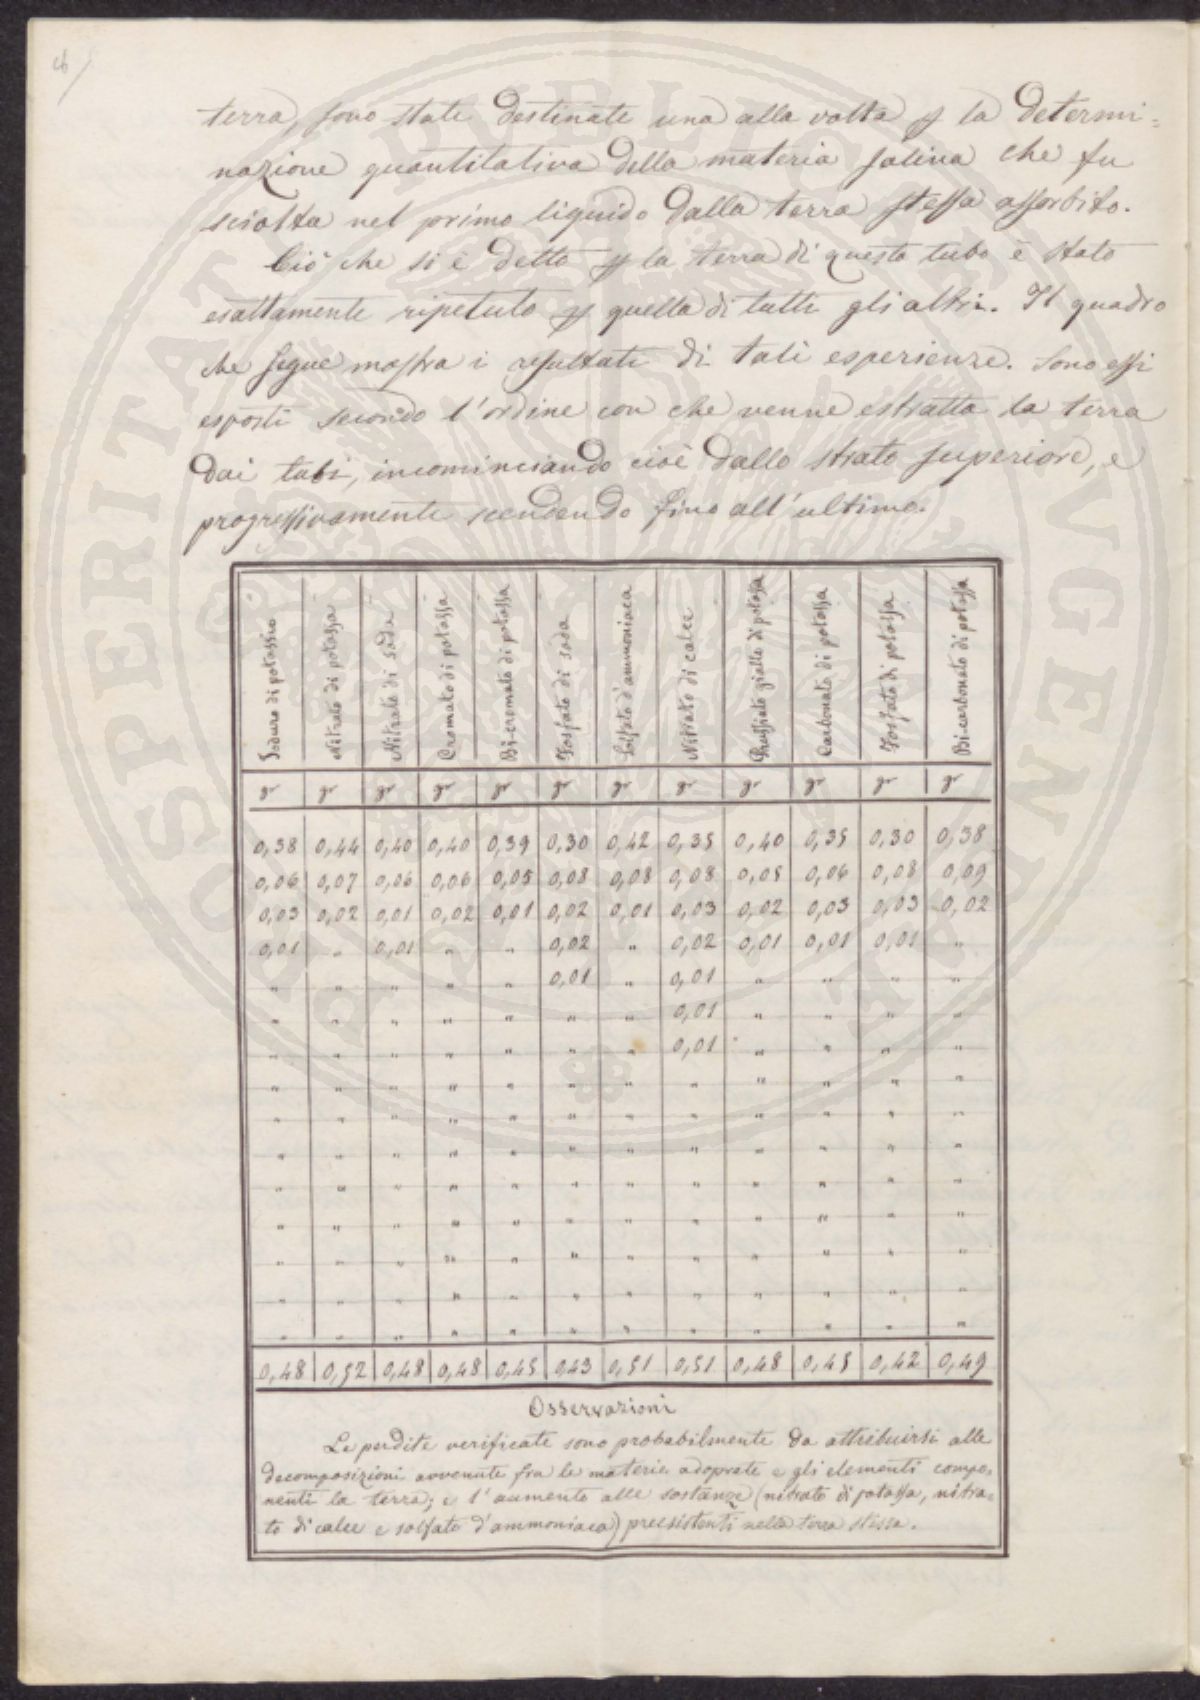 terra, sono state destinate una alla volta p la determi=
nazione quantitativa della materia salina che fu
sciolta nel primo liquido dalla terra stessa assorbito.
Ciò che si è detto p la terra di questo tubo è stato
esattamente ripetuto p quella di tutti gli altri. Il quadro
che segue mostra i resultati di tali esperienze. Sono essi
esposti secondo l'ordine con che venne estratta la terra
dai tubi, incominciando cioè dallo strato superiore, e
progressivamente scendendo fino all'ultimo.
Ioduro di potassio | Nitrato di potassa | Nitrato di soda | Cromato di potassa | Bi-cromato di potassa | Fosfato di soda | Solfato d'ammoniaca | Nitrato di calce | Prussiato giallo di potassa | Carbonato di potassa | Fosfato di potassa | Bi-carbonato di potassa
gr | gr | gr | gr | gr | gr | gr | gr | gr | gr | gr | gr
0,38 | 0,44 | 0,40 | 0,40 | 0,39 | 0,30 | 0,42 | 0,35 | 0,40 | 0,35 | 0,30 | 0,38
0,06 | 0,07 | 0,06 | 0,06 | 0,05 | 0,08 | 0,08 | 0,08 | 0,05 | 0,06 | 0,08 | 0,09
0,03 | 0,02 | 0,01 | 0,02 | 0,01 | 0,02 | 0,01 | 0,03 | 0,02 | 0,03 | 0,03 | 0,02
0,01 | " | 0,01 | " | " | 0,02 | " | 0,02 | 0,01 | 0,01 | 0,01 | "
" | " | " | " | " | 0,01 | " | 0,01 | " | " | " | "
" | " | " | " | " | " | " | 0,01 | " | " | " | "
" | " | " | " | " | " | " | 0,01 | " | " | " | "
" | " | " | " | " | " | " | " | " | " | " | "
" | " | " | " | " | " | " | " | " | " | " | "
" | " | " | " | " | " | " | " | " | " | " | "
" | " | " | " | " | " | " | " | " | " | " | "
" | " | " | " | " | " | " | " | " | " | " | "
" | " | " | " | " | " | " | " | " | " | " | "
" | " | " | " | " | " | " | " | " | " | " | "
" | " | " | " | " | " | " | " | " | " | " | "
0,48 | 0,52 | 0,48 | 0,48 | 0,45 | 0,43 | 0,51 | 0,51 | 0,48 | 0,45 | 0,42 | 0,49
Osservazioni
Le perdite verificate sono probabilmente da attribuirsi alle
decomposizioni avvenute fra le materie adoprate e gli elementi compo=
nenti la terra; e l'aumento alle sostanze (nitrato di potassa, nitra=
to di calce e solfato d'ammoniaca) preesistenti nella terra stessa.
PROSPERITATI PUBLICAE AUGENDAE